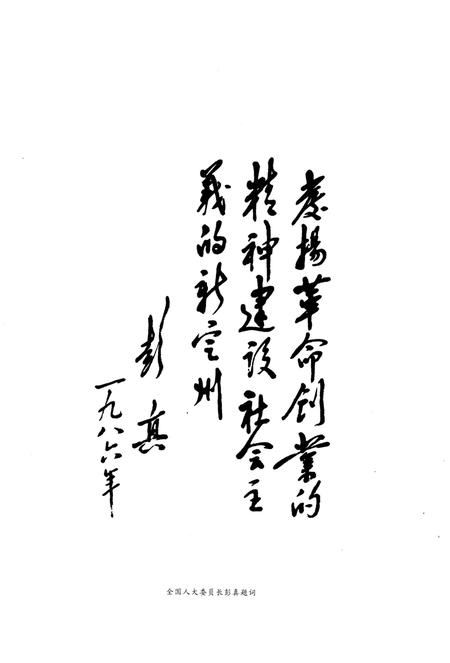 发扬革命创业的
精神建设社会主
義的新定州
彭真
一九八六年
全国人大委员长彭真题词